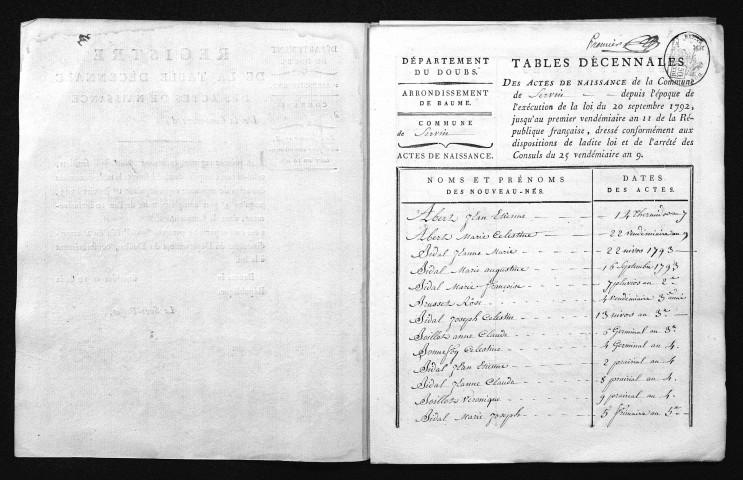 Premier
DÉPARTEMENT
DU DOUBS.
ARRONDISSEMENT
DE BAUME.
COMMUNE
de Servin
ACTES DE NAISSANCE.
TABLES DÉCENNALES
DES ACTES DE NAISSANCE de la Commune
de Servin depuis l'époque de
l'exécution de la loi du 20 septembre 1792,
jusqu'au premier vendémiaire an 11 de la Ré-
publique française, dressé conformément aux
dispositions de ladite loi et de l'arrêté des
Consuls du 25 vendémiaire an 9.
NOMS ET PRÉNOMS
DES NOUVEAU-NÉS.
DATES
DES ACTES.
Abert Jean Etienne 14 thermidor an 7
Abert Marie Celestine 22 vendémiaire an 9
Bidal Jeanne Marie 22 nivos 1793
Bidal Marie augustine 16 Septembre 1793
Bidal Marie françoise 7 pluvios an 2me
Brusset Rose 4 vendemiaire 3me année
Bidal Joseph Celestin 13 nivos an 3me
Boillot anne Claude 6 Germinal an 3e
Bonnefoy Celestine 4 Germinal an 4.
Bidal Jean Etienne 2 prairial an 4
Bidal Jeanne Claude 8 prairial an 4.
Boillot Véronique 9 prairial an 4.
Bidal Marie Joseph 5 frimaire an 5me